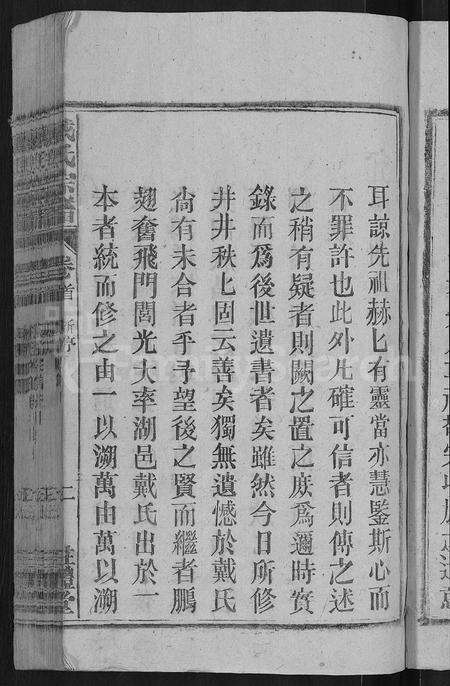 耳諒先祖赫匕有靈當亦慧鑒斯心而
不罪許也此外凡確可信者則傳之述
之稍有疑者則闕之置之庶為邇時實
錄而為後世遺書者矣雖然今日所修
井井秩匕固云善矣獨無遺憾於戴氏
尙有未合者乎予望後之賢而繼者鵬
翅奮飛門閭光大率湖邑戴氏出於一
本者統而修之由一以溯萬由萬以溯
戴氏宗譜 卷首 新序 二